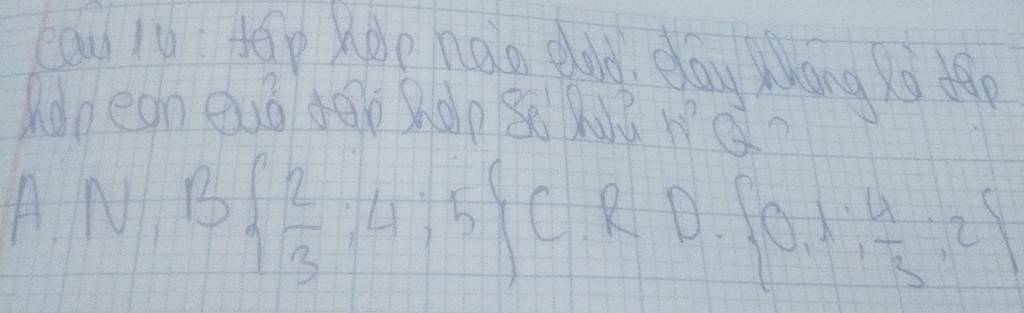 câu 14: tập hợp nào dưới đây không là tập
hợp con của tập hợp số hữu tỉ Q?
A. N, B {2/3; 4; 5} C. R D. {0, 1; 4/3; 2}